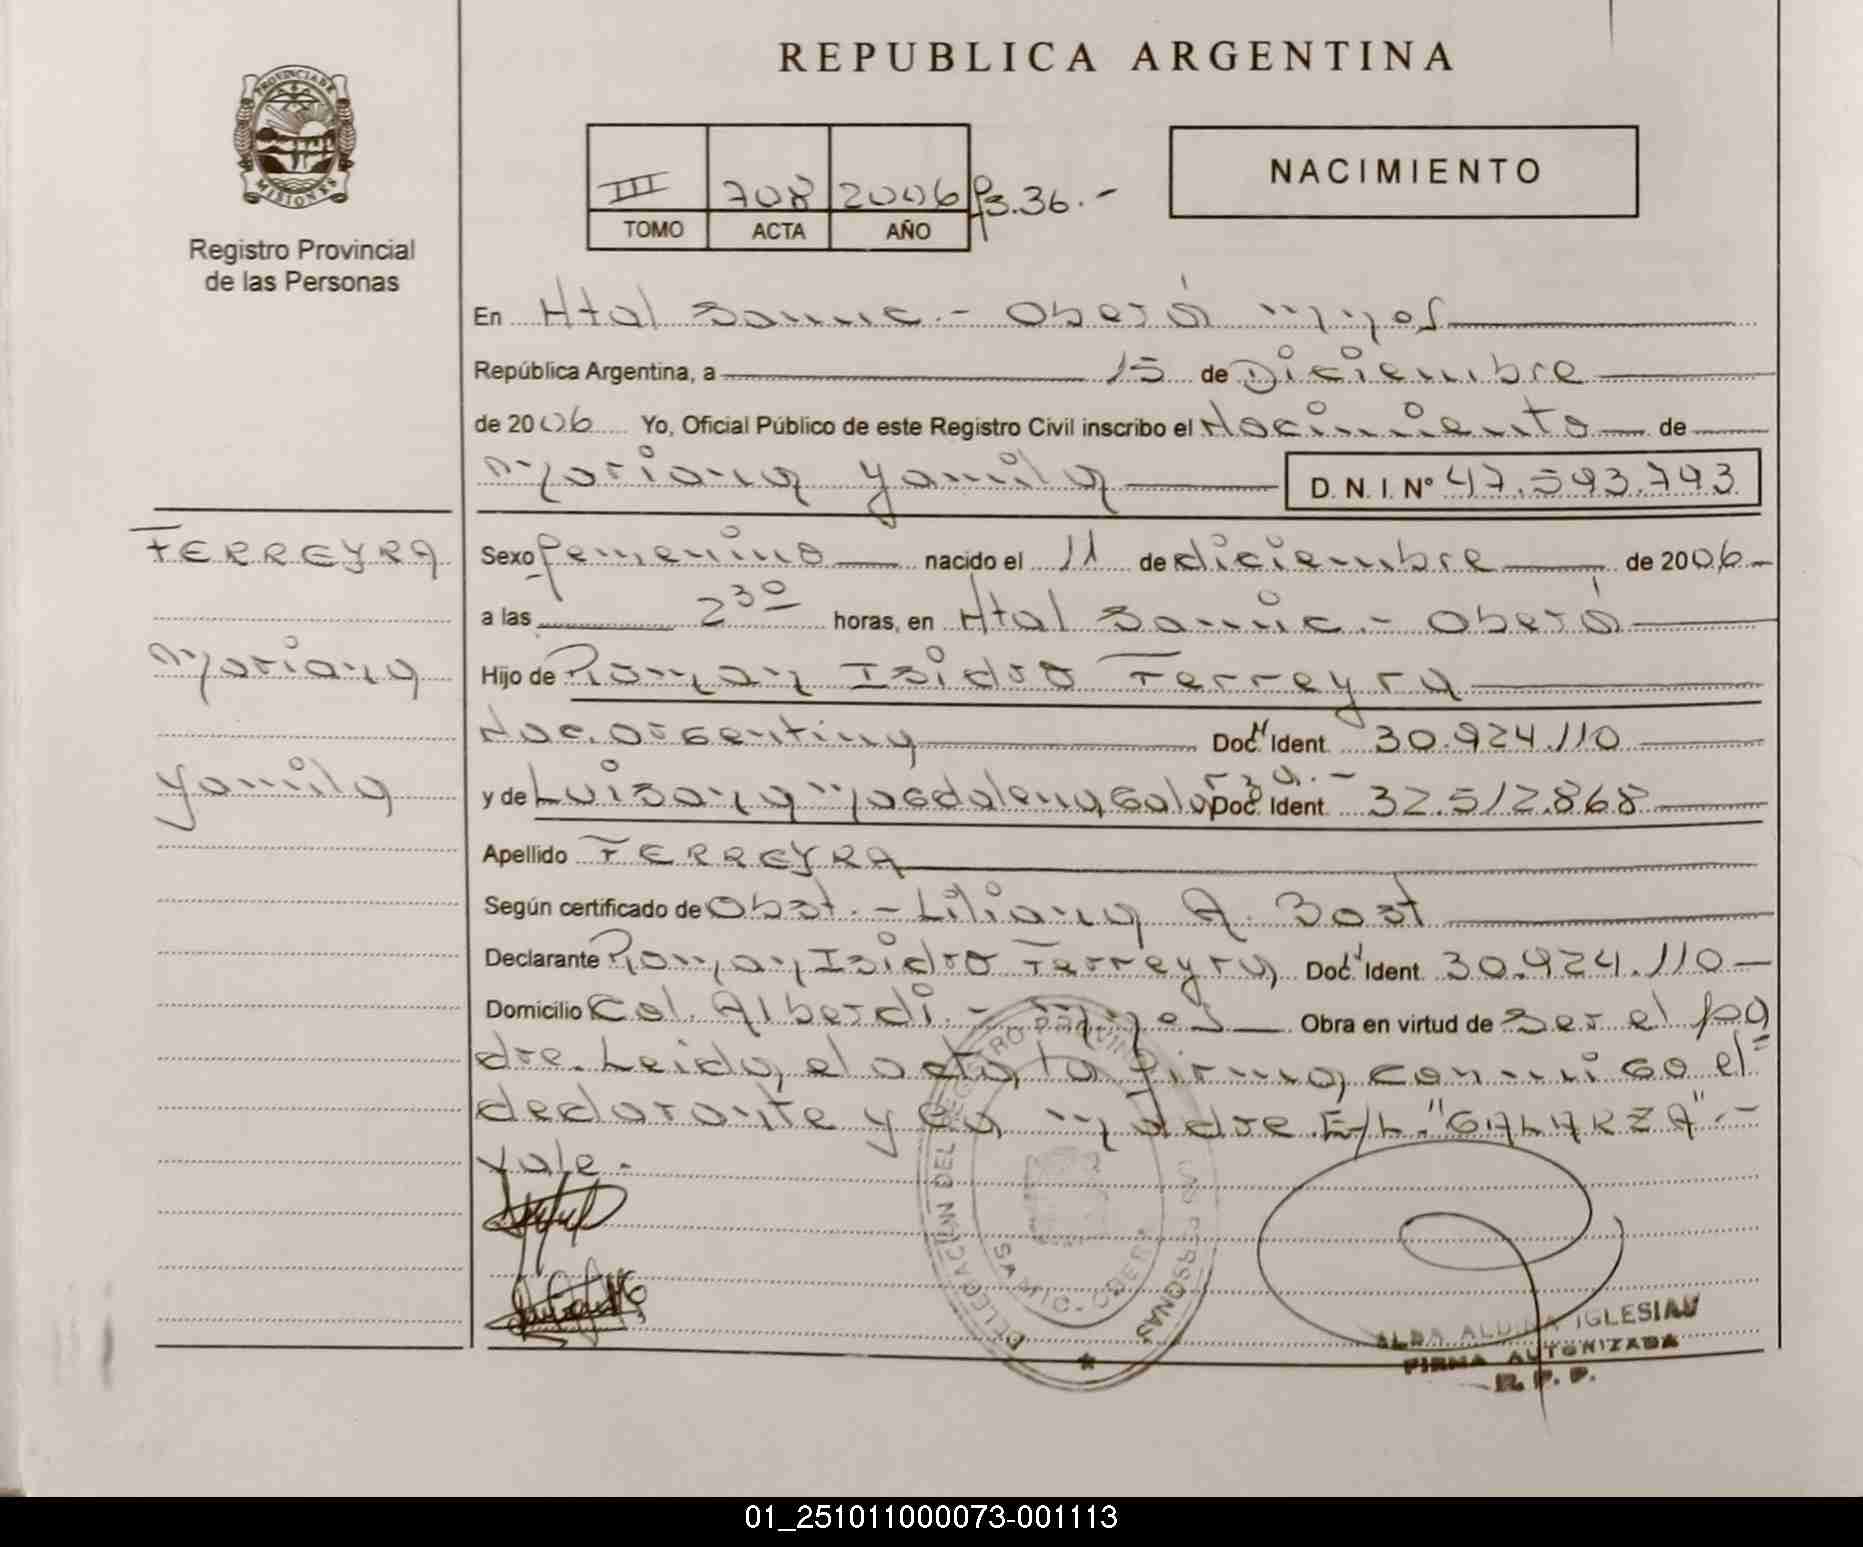 REPUBLICA ARGENTINA
PROVINCIA DE MISIONES
Registro Provincial
de las Personas
III 708 2006 F3.36.-
TOMO ACTA AÑO
NACIMIENTO
En Htal Samic.- Oberá Mnes
República Argentina, a 15 de Diciembre
de 2006 Yo, Oficial Público de este Registro Civil inscribo el Nacimiento de
Mariana Yamila D. N. I. Nº 47.593.793
FERREYRA
Mariana
Yamila
Sexo femenino nacido el 11 de diciembre de 2006.-
a las 2 30 horas, en Htal Samic.- Oberá
Hijo de Roman Isidro Ferreyra
Nac. Argentina Doc. Ident. 30.924.110
y de Luisana Magdalena Galarza.- Doc. Ident. 32.512.868
Apellido FERREYRA
Según certificado de Obst.- Liliana A. Bast
Declarante Roman Isidro Ferreyra, Doc. Ident. 30.924.110-
Domicilio Col. Alberdi.- Mnes Obra en virtud de ser el pa
dre. Leida el acta, la firma conmigo el=
declarante y la madre. E/L. "GALARZA".-
Vale.-
DELEGACION DEL REGISTRO PROVINCIAL DE LAS PERSONAS
ALBA ALDINA IGLESIAS
FIRMA AUTORIZADA
R. P. P.
01_251011000073-001113